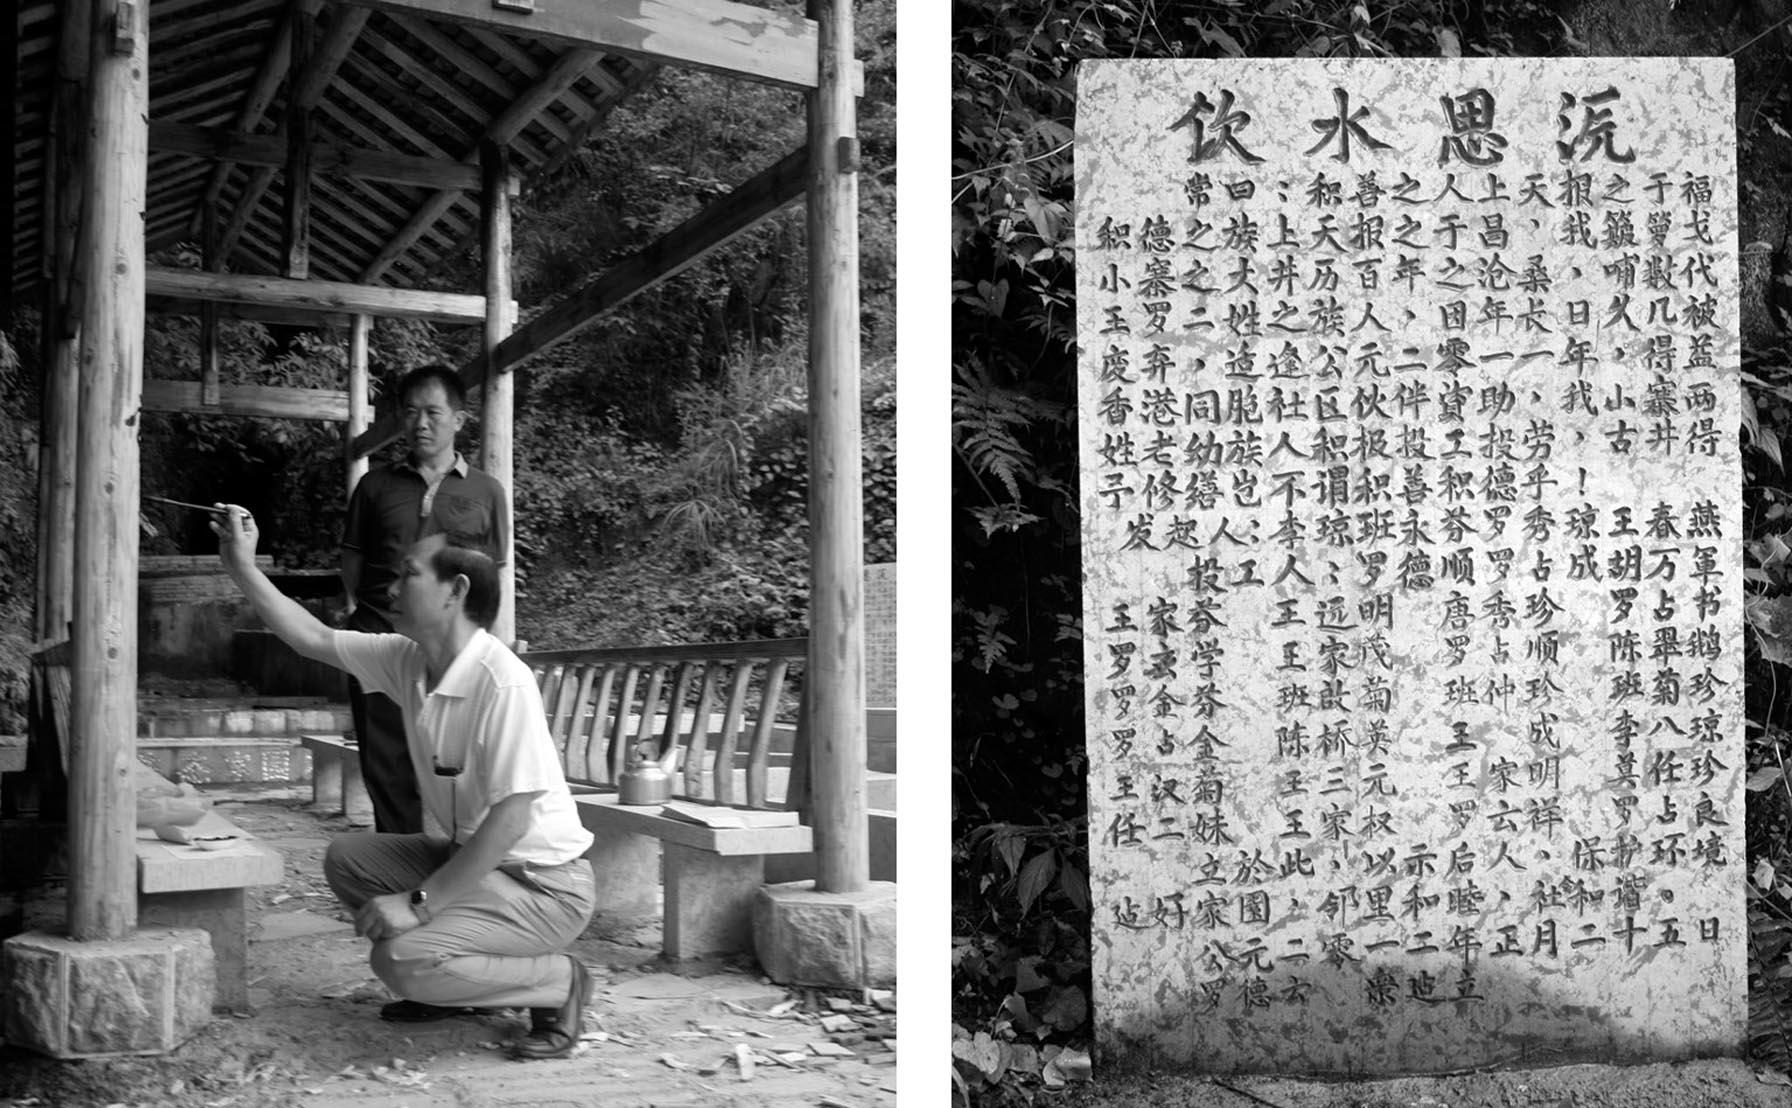 饮水思源
积小王废香姓予 王罗罗罗王任 迠
德寨罗弃港老修发 家玄金占汉二 好
常之之二，同幼缮起 投芬学芬金菊妹立家公罗
曰族大姓造胞族岂人：工 於園元德
：上井之逢社人不李人王王班陈王王此，二云
积天历族公区积谓琼：远家故桥三家，邻零
善报百人元伙极积班罗明茂菊英元权以里一崇
之之年，二伴投善永德 示和二迠
人于之因零資工积芬顺唐罗班王王罗后睦年立
上昌沧年一助投德罗罗秀占仲 家云人，正
天，桑长一，劳乎秀占珍顺珍成明祥，社月
报我，日年我，！琼成 保和二
之哺久，小古 王胡罗陈班李莫罗护谐十
于數几得寨井 春万占翠菊八任占环。五
福戈代被益两得 燕軍书鹅珍琼珍良境 日